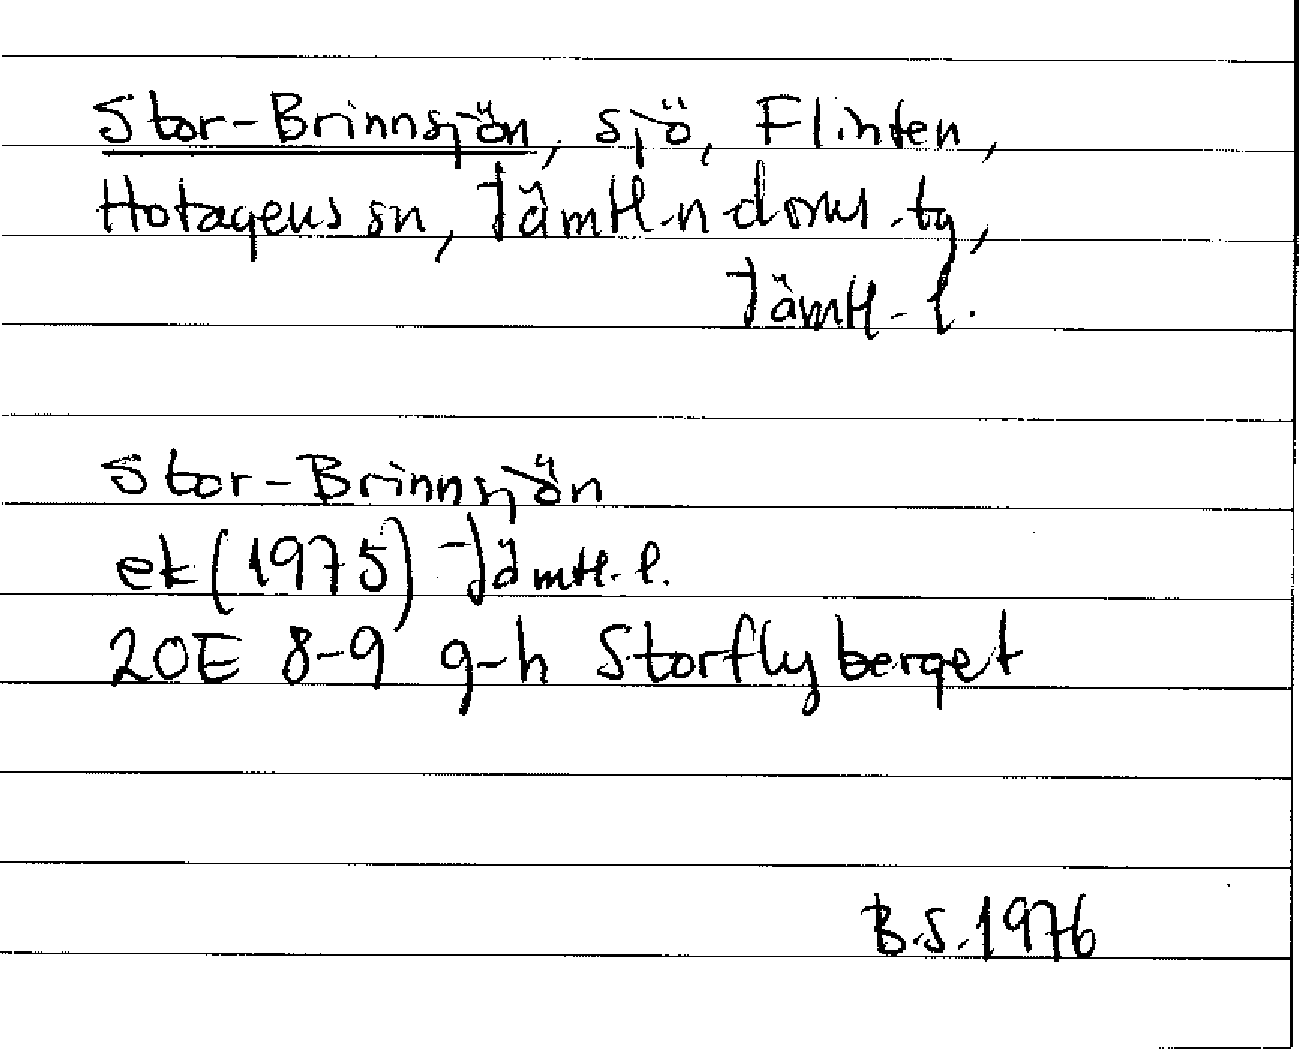 Stor-Brinnsjön, sjö, Flinten,
Hotagens sn, Jämtl. n doms. tg,
Jämtl. l.
Stor-Brinnsjön
ek (1975) Jämtl. l.
20E 8-9 g-h Storflyberget
B.S. 1976